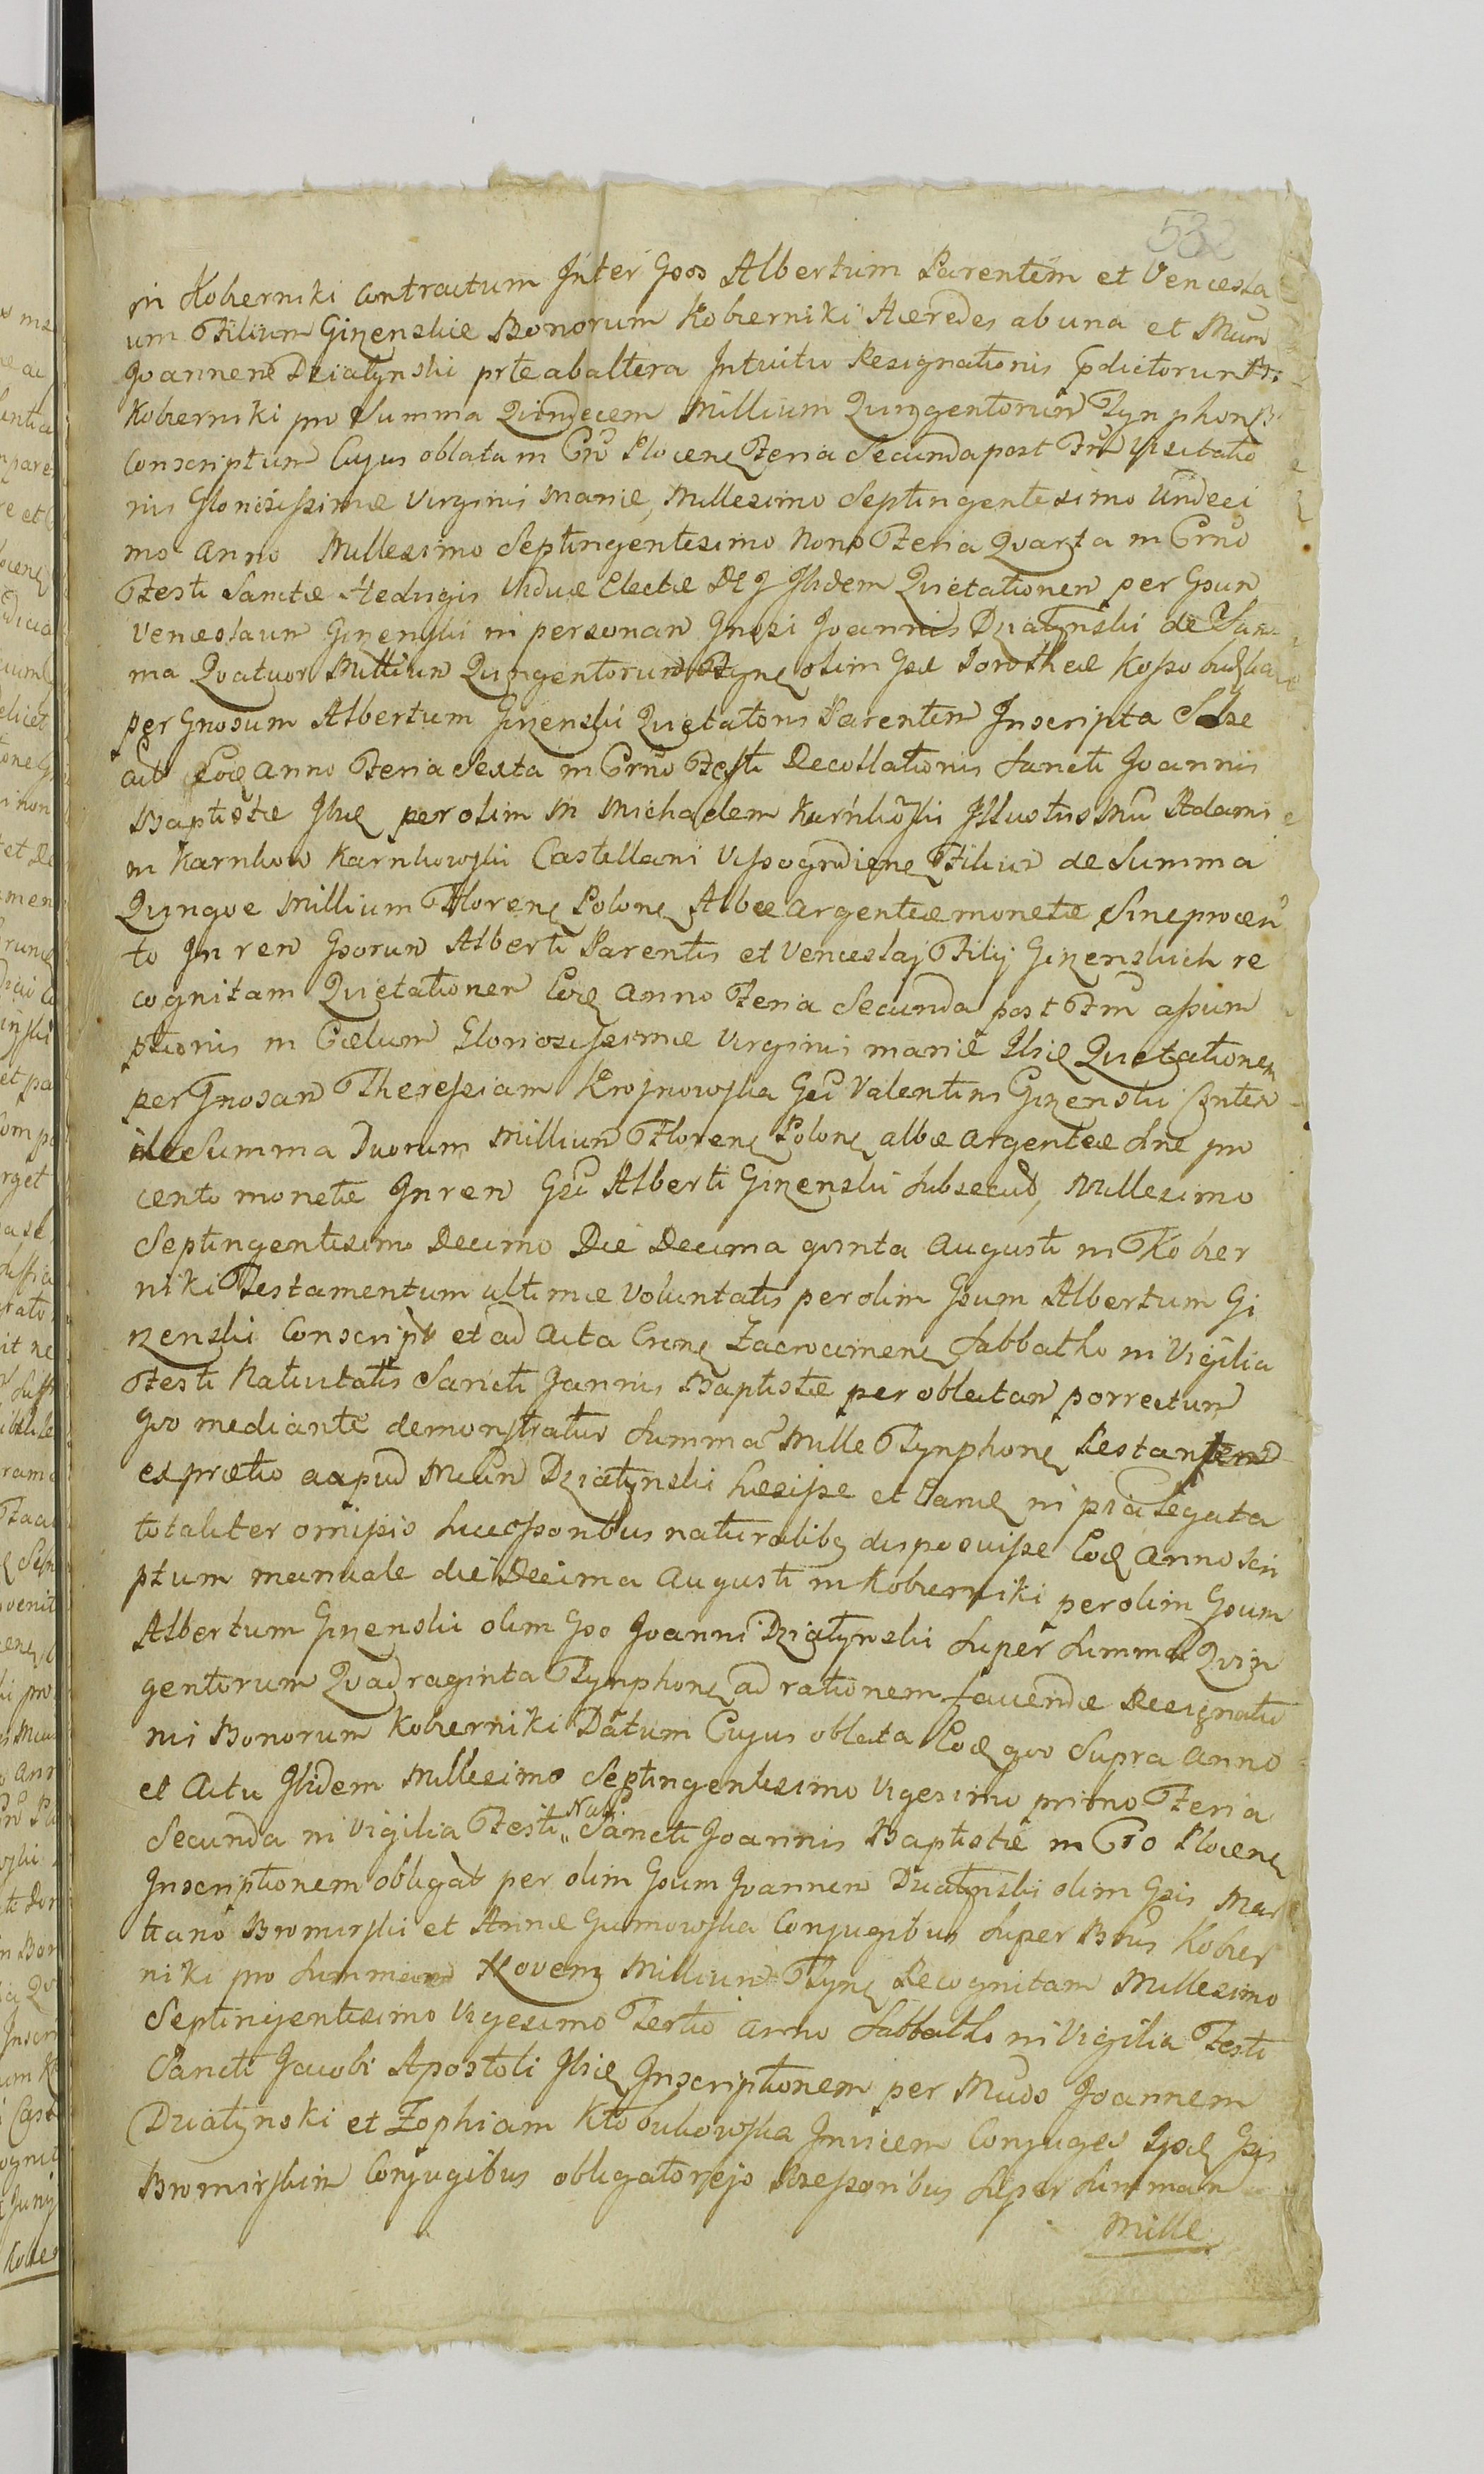 532
in Kobierniki contractum Inter Gsos Albertum Parentem et Vencesla
um Filium Gizenskie Bonorum Kobierniki Hæredes ab una et Mum
Joannem Dziatynski prte ab altera Intuitu Resignationis pdictorum
Kobierniki pro Summa Quindecem Millium Quingentorum Tynphon
Conscriptum Cujus oblata in Cro Plocen Feria Secunda post Ftm Visitatio
nis Gloriosissimæ Virginis Mariæ, Millesimo Septingentesimo Undeci
mo anno Millesimo Septingentesimo Nono Feria Quarta in Crno
Festi Sanctæ Hedvigis Viduæ Electæ Ibidem Quietationem per Gsum
Venceslaum Gizenski in personam Gnosi Joannis Dziatynski de Sum
ma Quatuor Millium Quingentorum Tyn olim Gsæ Dorotheæ
per Gnosum Albertum Gizenski Quietatoris Parentem Inscripta
cit Eod anno Feria Sexta in Crno Festi Decollationis Sancti Joannis
Baptistæ Ibid per olim M Michaelem Karnkowski Adami
in Karnkow Karnkowski Castellani Filium de Summa
Quinque Millium Floren Polon Albæ argenteæ monetæ Sine procen
to In rem Gsorum Alberti Parentis et Venceslaj Filij Gizenskich re
cognitam Quietationem Eod anno Feria Secunda post Ftm assum
ptionis in Cælum Gloriosissimæ Virginis mariæ Ibid Quietationem
per Gnosam Theressiam Krojnowska Gsi Valentini Gizenski
de Summa Duorum Millium Floren Polon albæ argenteæ sine pro
cento monetæ In rem Gsi Alberti Gizenski subsecut, Millesimo
Septingentesimo Decimo Die Decima quinta Augusti in Kobier
niki Testamentum ultimæ Voluntatis per olim Gsum Albertum Gi
zenski Conscript et ad acta Cren Zacrocimen Sabbatho in Vigilia
Festi Nativitatis Sancti Jannis Baptistæ per oblatam porrectum
quo mediante demonstratur Summa Mille Tynphon
ex prætio aapud Mum Dziatynski hæsisse et in pia legata
totaliter omissis Successoribus naturalibq disposuisse Eod anno Scri
ptum manuale die Decima Augusti in Kobierniki per olim Gsum
Albertum Gizenski olim Gso Joanni Dziatynski Super Summa Quin
gentorum Quadraginta Tynphon ad rationem favendæ Resignatio
nis Bonorum Kobierniki Datum Cujus oblata Eod quo Supra anno
et Actu Ibidem Millesimo Septingentesimo Vigesimo primo Feria
Secunda in Vigilia Festi Nat Sancti Joannis Baptistæ in Cro Plocen
Inscriptionem obligat per olim Gsum Joannem Dziatynski olim Gsis Mar
tiano Bromirski et Annæ Gumowska Conjugibus Super Bnis Kobier
niki pro Summa Novem Millium Tyn Recognitam Millesimo
Septingentesimo Vigesimo Tertio anno Sabbatho in Vigilia Festi
Sancti Jacobi Apostoli Ibid Inscriptionem per Mudos Joannem
Dziatynski et Zophiam Kłobukowska Invicem Conjuges Gsis
Bromirskim Conjugibus obligatorijs Super Summam
Mille